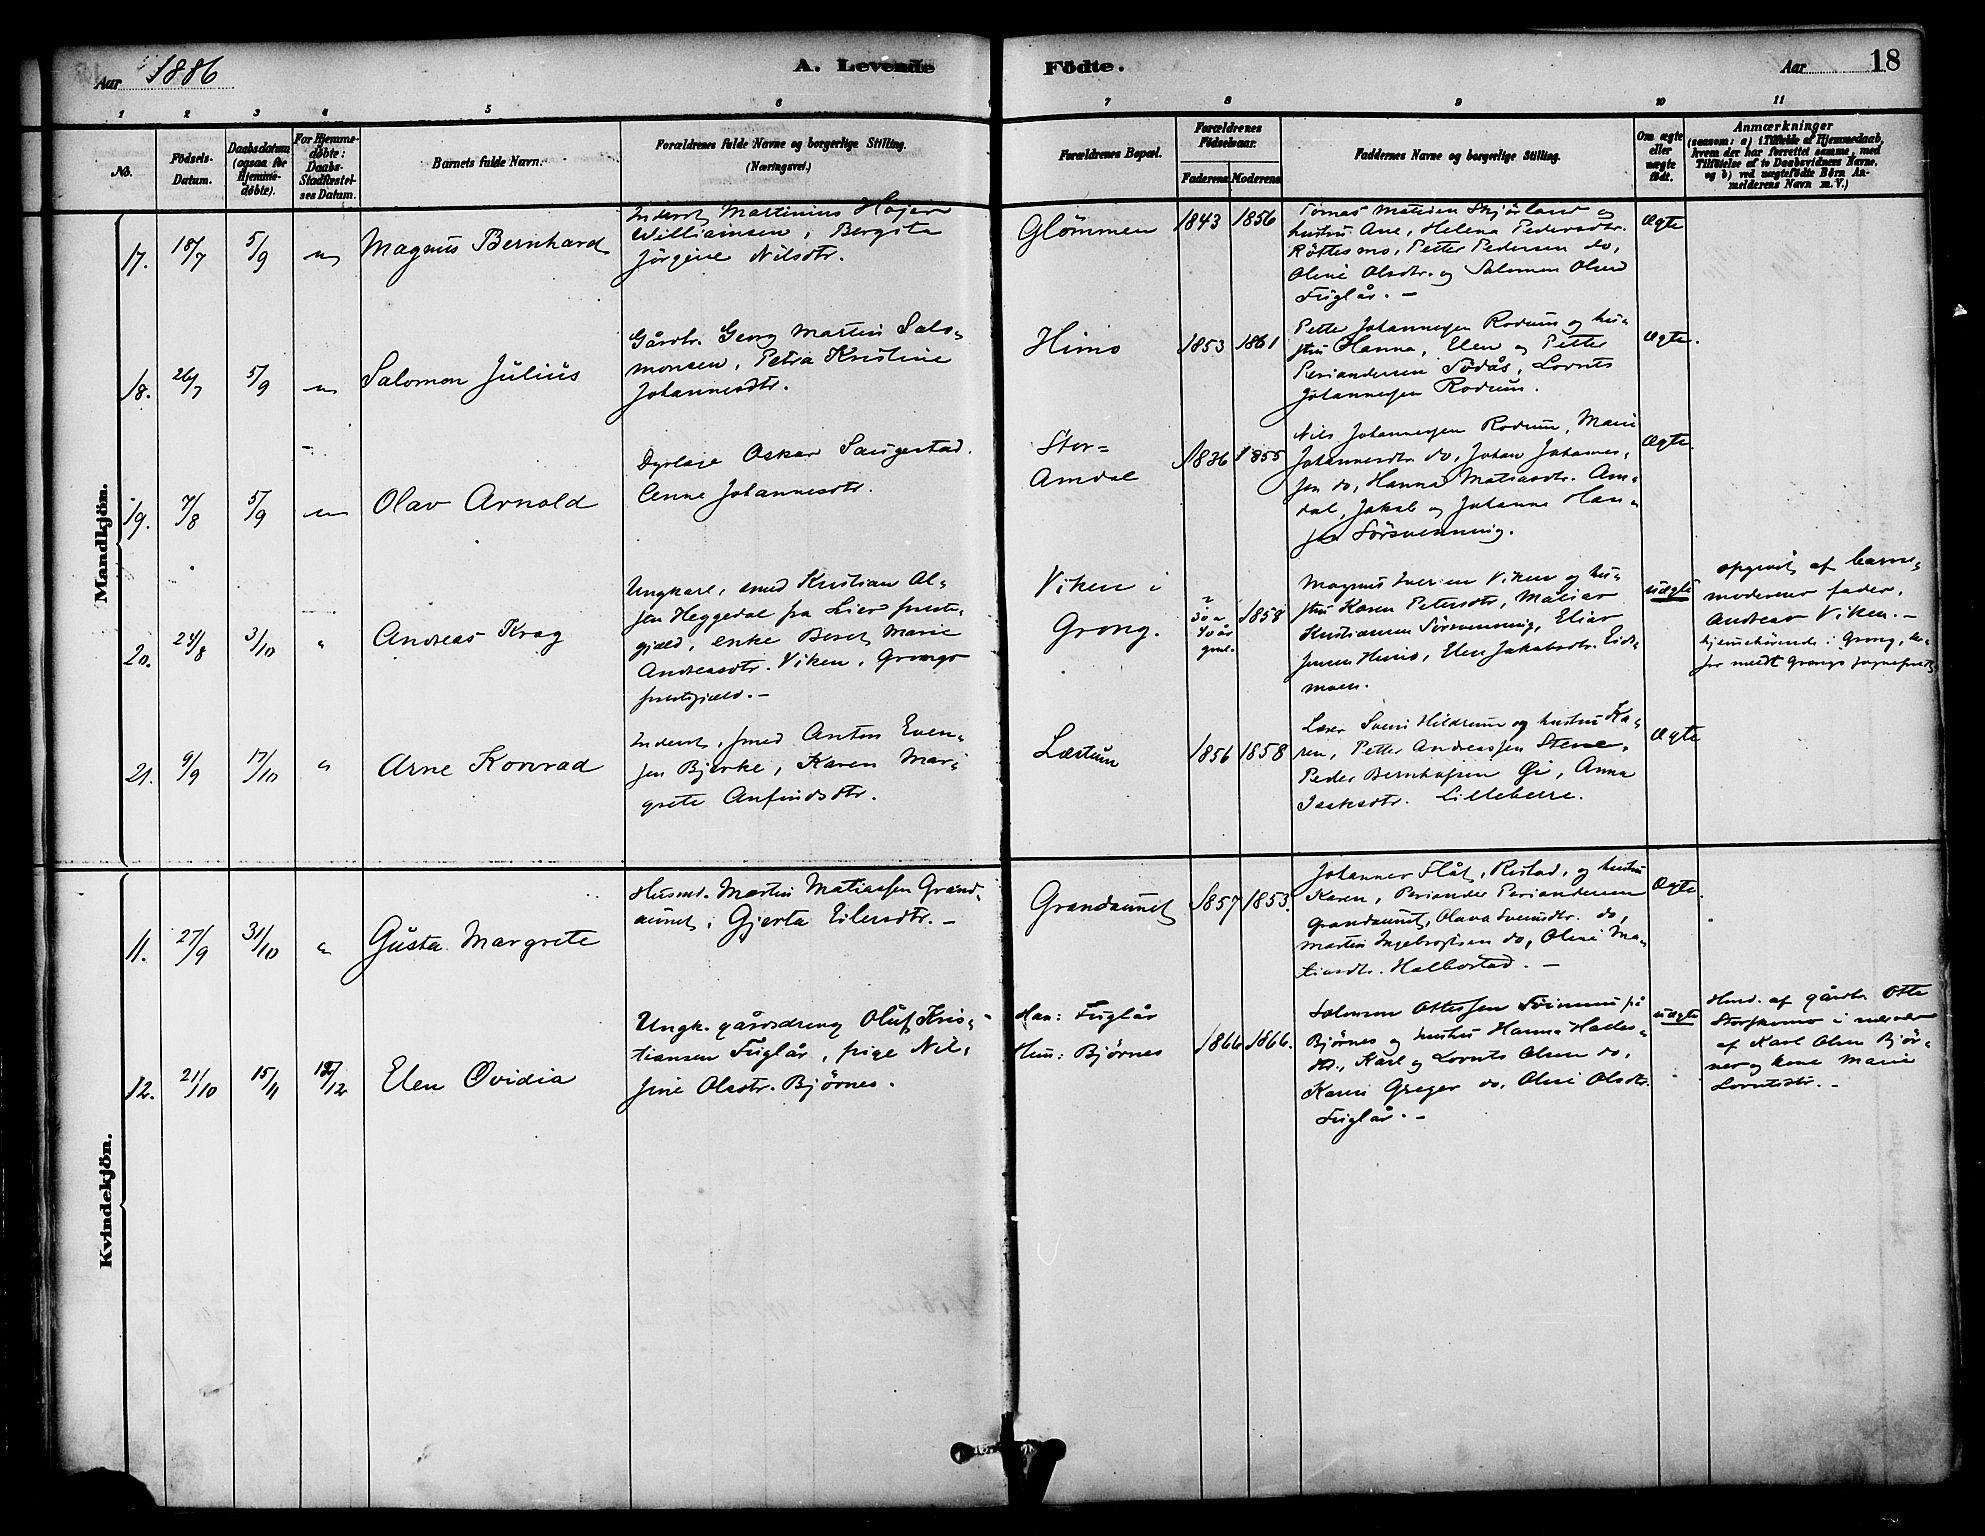 Aar 1886
A. Levende Födte.
Aar 18
1 2 3 4 5 6 7 8 9 10 11
No.
Födsels-
Datum.
Daabsdatum
(ogsaa for
Hjemme-
døbte).
For Hjemme-
døbte:
Daabs-
Stadfæstel-
ses Datum.
Barnets fulde Navn.
Forældrenes fulde Navne og borgerlige Stilling.
(Næringsvei.)
Forældrenes Bopæl.
Forældrenes
Födselsaar.
Faderens Moderens
Faddernes Navne og borgerlige Stilling.
Om ægte
eller
uægte
født.
Anmærkninger
(saasom: a) i Tilfælde af Hjemmedaab,
hvem der har forrettet samme, med
Tilföielse af to Daabsvidners Navne,
og b) ved uægtefödte Börn An-
melderens Navn m. V.)
Mandkjön.
17. 18/7 5/9 Magnus Bernhard
Inderst Martinius Højer
Williamsen, Bergita
Jörgine Nilsdtr.
Glömmen 1843 1856
Tomas Skjörland og
hustru Ane, Helena Pedersdtr.
Röttesmo, Petter Pedersen do,
Oline Olsdtr. og Salomon Olsen
Fuglår. —
Ægte
18. 26/7 5/9 Salomon Julius
Gårdbr. Georg Martin Salo-
monsen, Petra Kristine
Johannesdtr.
Himo 1853 1861
Petter Johannesen Rodum og hu-
stru Hanna, Elen og Petter
Periandersen Södås, Lornts
Johannesen Rodum.
Ægte.
19. 7/8 5/9 Olav Arnold
Dyrlæge Oskar Saugestad.
Cenne Johannesdtr.
Stor-
Amdal 1836 1855
Nils Johannesen Rodum, Marie
Johannesdtr do, Johan Johannes-
sen do, Hanna Matiasdtr. Am-
dal, Jakob og Johanna Han-
sen Sörsvenning.
Ægte.
20. 24/8 3/10 " Andreas Krag
Ungkarl, smed Kristian Ol-
sen Heggedal fra Lier preste-
gjæld, enke Beret Marie
Andreasdtr. Viken, Grongs
prestegjæld. —
Viken i
Grong. 30 a
40 år
gml. 1858
Magnus Iversen Viken og hu-
stru Karen Petersdtr, Matias
Kristiansen Sörsvenning, Elias
Jensen Himo, Elen Jakobsdtr. Eid-
moen.
uægte
opgivet af barne-
moderens fader,
Andreas Viken. —
hjemmehörende i Grong,
meldt Grongs sogneprest
21. 9/9 17/10 " Arne Konrad
Inderst, smed Anton Even-
sen Bjerke, Karen Mar-
grete Anfindsdtr.
Læstum 1856 1858
Læser Svein Hildrum og hustru Ka-
ren, Petter Andreassen Stene,
Peder Bernhoffsen Öi, Anna
Isaksdtr. Lilleberre.
Ægte
Kvindekjön.
11. 27/9 31/10 " Gusta Margrete
Husmd. Martin Matiassen Grand-
aunet, Gjerta Eilersdtr. —
Grandaunet 1857 1853.
Johannes Flåt, Ristad, og hustru
Karen, Periander Periandersen
Grandaunet, Olava Svendsdtr. do,
Martin Ingebrigtsen do, Oline Ma-
tiasdtr. Halbostad. —
Ægte.
12. 21/10 15/11 12/12 Elen Ovidia
Ungk. gårdsdreng Oluf Kris-
tiansen Fuglår, pige Nil-
sine Olsdtr. Bjørnes.
Han: Fuglår
Hun: Bjørnes 1866 1866.
Salomon Ottersen på
Bjørnes og hustru Hanna
do., Karl og Lornts Olsen do,
Karen Greger do, Oline Olsdtr.
Fuglår. —
uægte
Hmd. af gårdbr. Otte
i nærvær
af Karl Olsen Bjør-
nes og kone Marie
Lorntsdtr. —